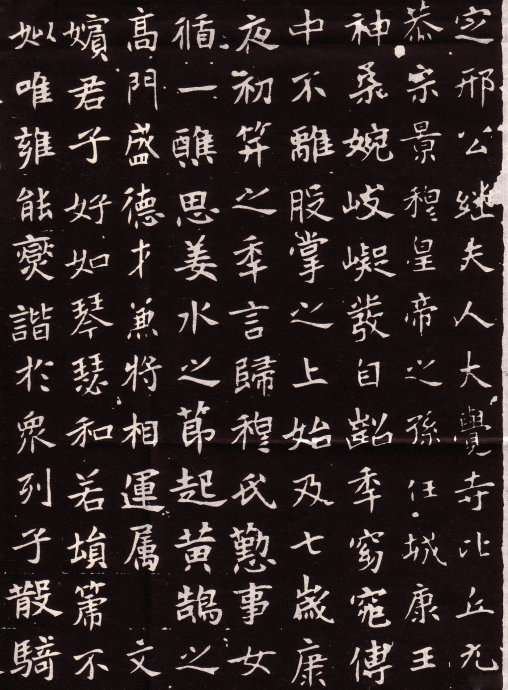 定邢公継夫人大覺寺比丘元
恭宗景穆皇帝之孫任城康王
神桒婉岐嶷發自齠秊窈窕傳
中不離股掌之上始及七歲康
夜初筓之秊言歸穆氏懃事女
循一醮思姜水之節起黃鵠之
高門盛德才兼將相運属 文
嬪君子好如琴瑟和若塤篪不
姒唯雍能燮諧於衆列子散騎